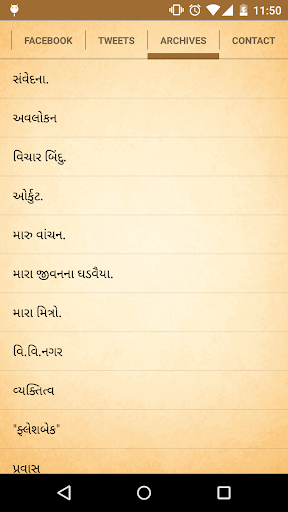 11:50
FACEBOOK TWEETS ARCHIVES CONTACT
સંવેદના.
અવલોકન
વિચાર બિંદુ.
ઓર્કુટ.
મારુ વાંચન.
મારા જીવનના ઘડવૈયા.
મારા મિત્રો.
વિ.વિ.નગર
વ્યક્તિત્વ
"ફ્લેશબેક"
પ્રવાસ